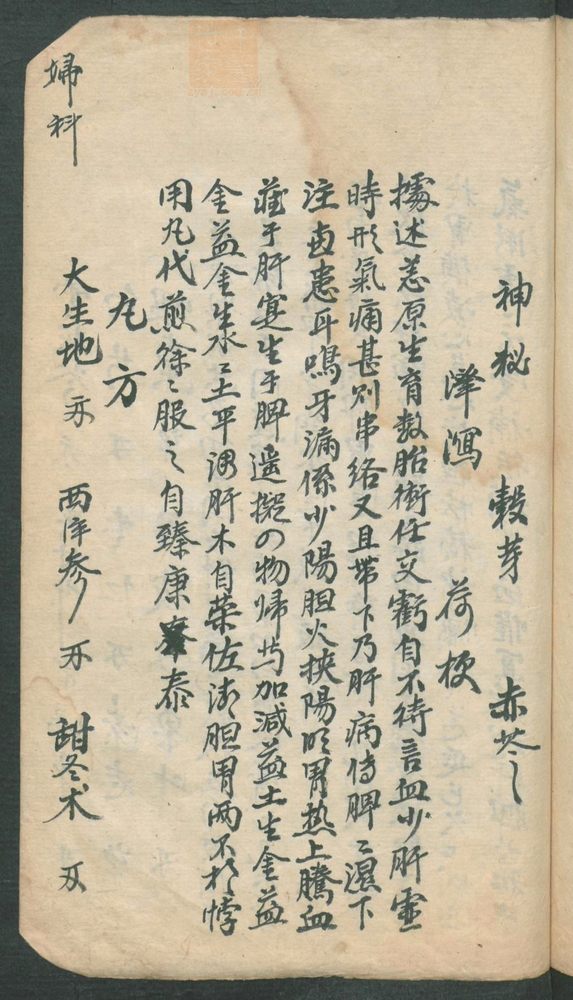 神秘 穀芽 赤苓
澤瀉 荷梗
據述恙原生育數胎衝任交虧自不待言血少肝虛
時形氣痛甚則串絡又且帶下乃肝病傳脾脾濕下
注齒患耳鳴牙漏係少陽胆火挾陽明胃熱上騰血
藏于肝寔生于脾遥擬四物歸芍加減益土生金益
金益金生水水土平調肝木自榮佐淸胆胃兩不相悖
用丸代煎徐徐服之自臻康泰
丸方
大生地 西洋參 甜冬术
婦科